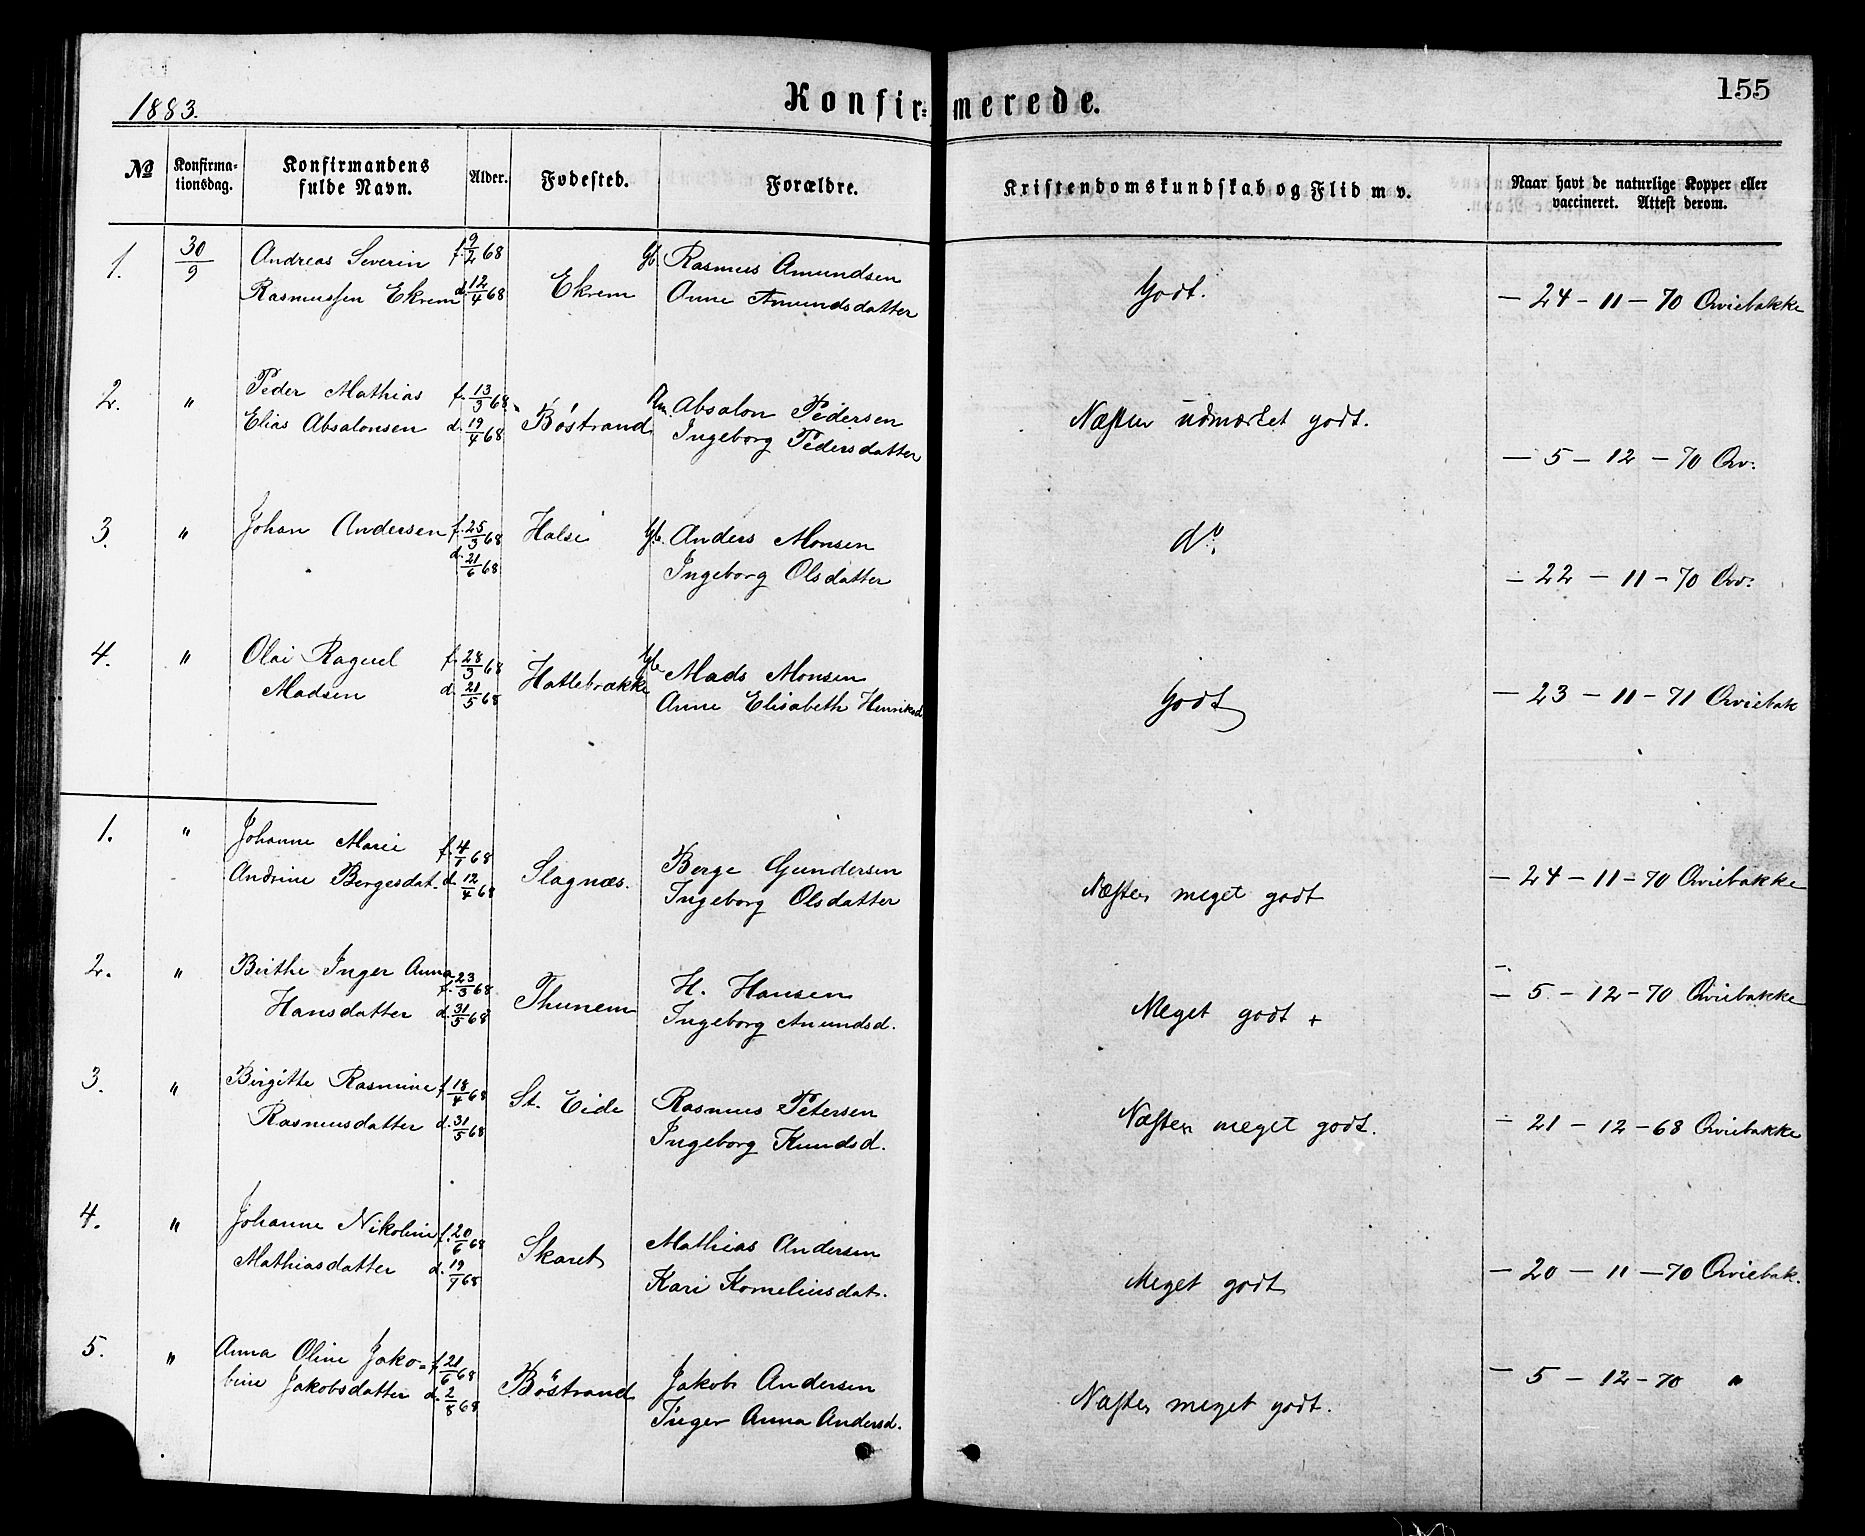 1883.
Konfir=merede.
155
No
Konfirma-
tionsdag.
Konfirmandens
fulde Navn.
Alder.
Fødested.
Forældre.
Kristendomskundskab og Flid m v.
Naar havt de naturlige Kopper eller
vaccineret. Attest derom.
1. 30/9 Andreas Severin f. 9/2 68 Ekrem Gb. Rasmus Amundsen Godt. — 24 — 11 — 70 Qviebakke
Rasmussen Ekrem d. 12/4 68 Anne Amundsdatter
2. " Peder Mathias f. 13/3 68 Böstrand Absalon Pedersen Næsten udmærket godt. — 5 — 12 — 70 Qv:
Elias Absalonsen d. 19/4 68 Ingeborg Pedersdatter
3. " Johan Andersen f. 25/3 68 Halse Gb. Anders Monsen do. — 22 — 11 — 70 Qv:
d. 21/6 68 Ingeborg Olsdatter
4. " Olai Raguel f. 28/3 68 Hatlebrække Gb. Mads Monsen Godt — 23 — 11 — 71 Qviebak
Madsen d. 21/5 68 Anne Elisabeth Henriksd
1. " Johanne Marie f. 4/1 68 Slagnæs. Berge Gundersen Næsten meget godt — 24 — 11 — 70 Qviebakke
Andrine Bergesdat. d. 12/4 68 Ingeborg Olsdatter
2. " Birthe Inger Anna f. 23/3 68 Thunem H. Hansen Meget godt + — 5 — 12 — 70 Qviebakke
Hansdatter d. 31/5 68 Ingeborg Amundsd.
3. " Birgitte Rasmine f. 18/4 68 St. Eide Rasmus Petersen Næsten meget godt. — 21 — 12 — 68 Qviebakke
Rasmusdatter d. 31/5 68 Ingeborg Knudsd.
4. " Johanne Nikoline f. 20/6 68 Skaret Mathias Andersen Meget godt — 20 — 11 — 70 Qviebak.
Mathiasdatter d. 19/7 68 Kari Korneliusdat.
5. " Anna Oline Jako= f. 21/6 68 Böstrand Jakob Andersen Næsten meget godt. — 5 — 12 — 70 "
bine Jakobsdatter d. 2/8 68 Inger Anna Andersd.